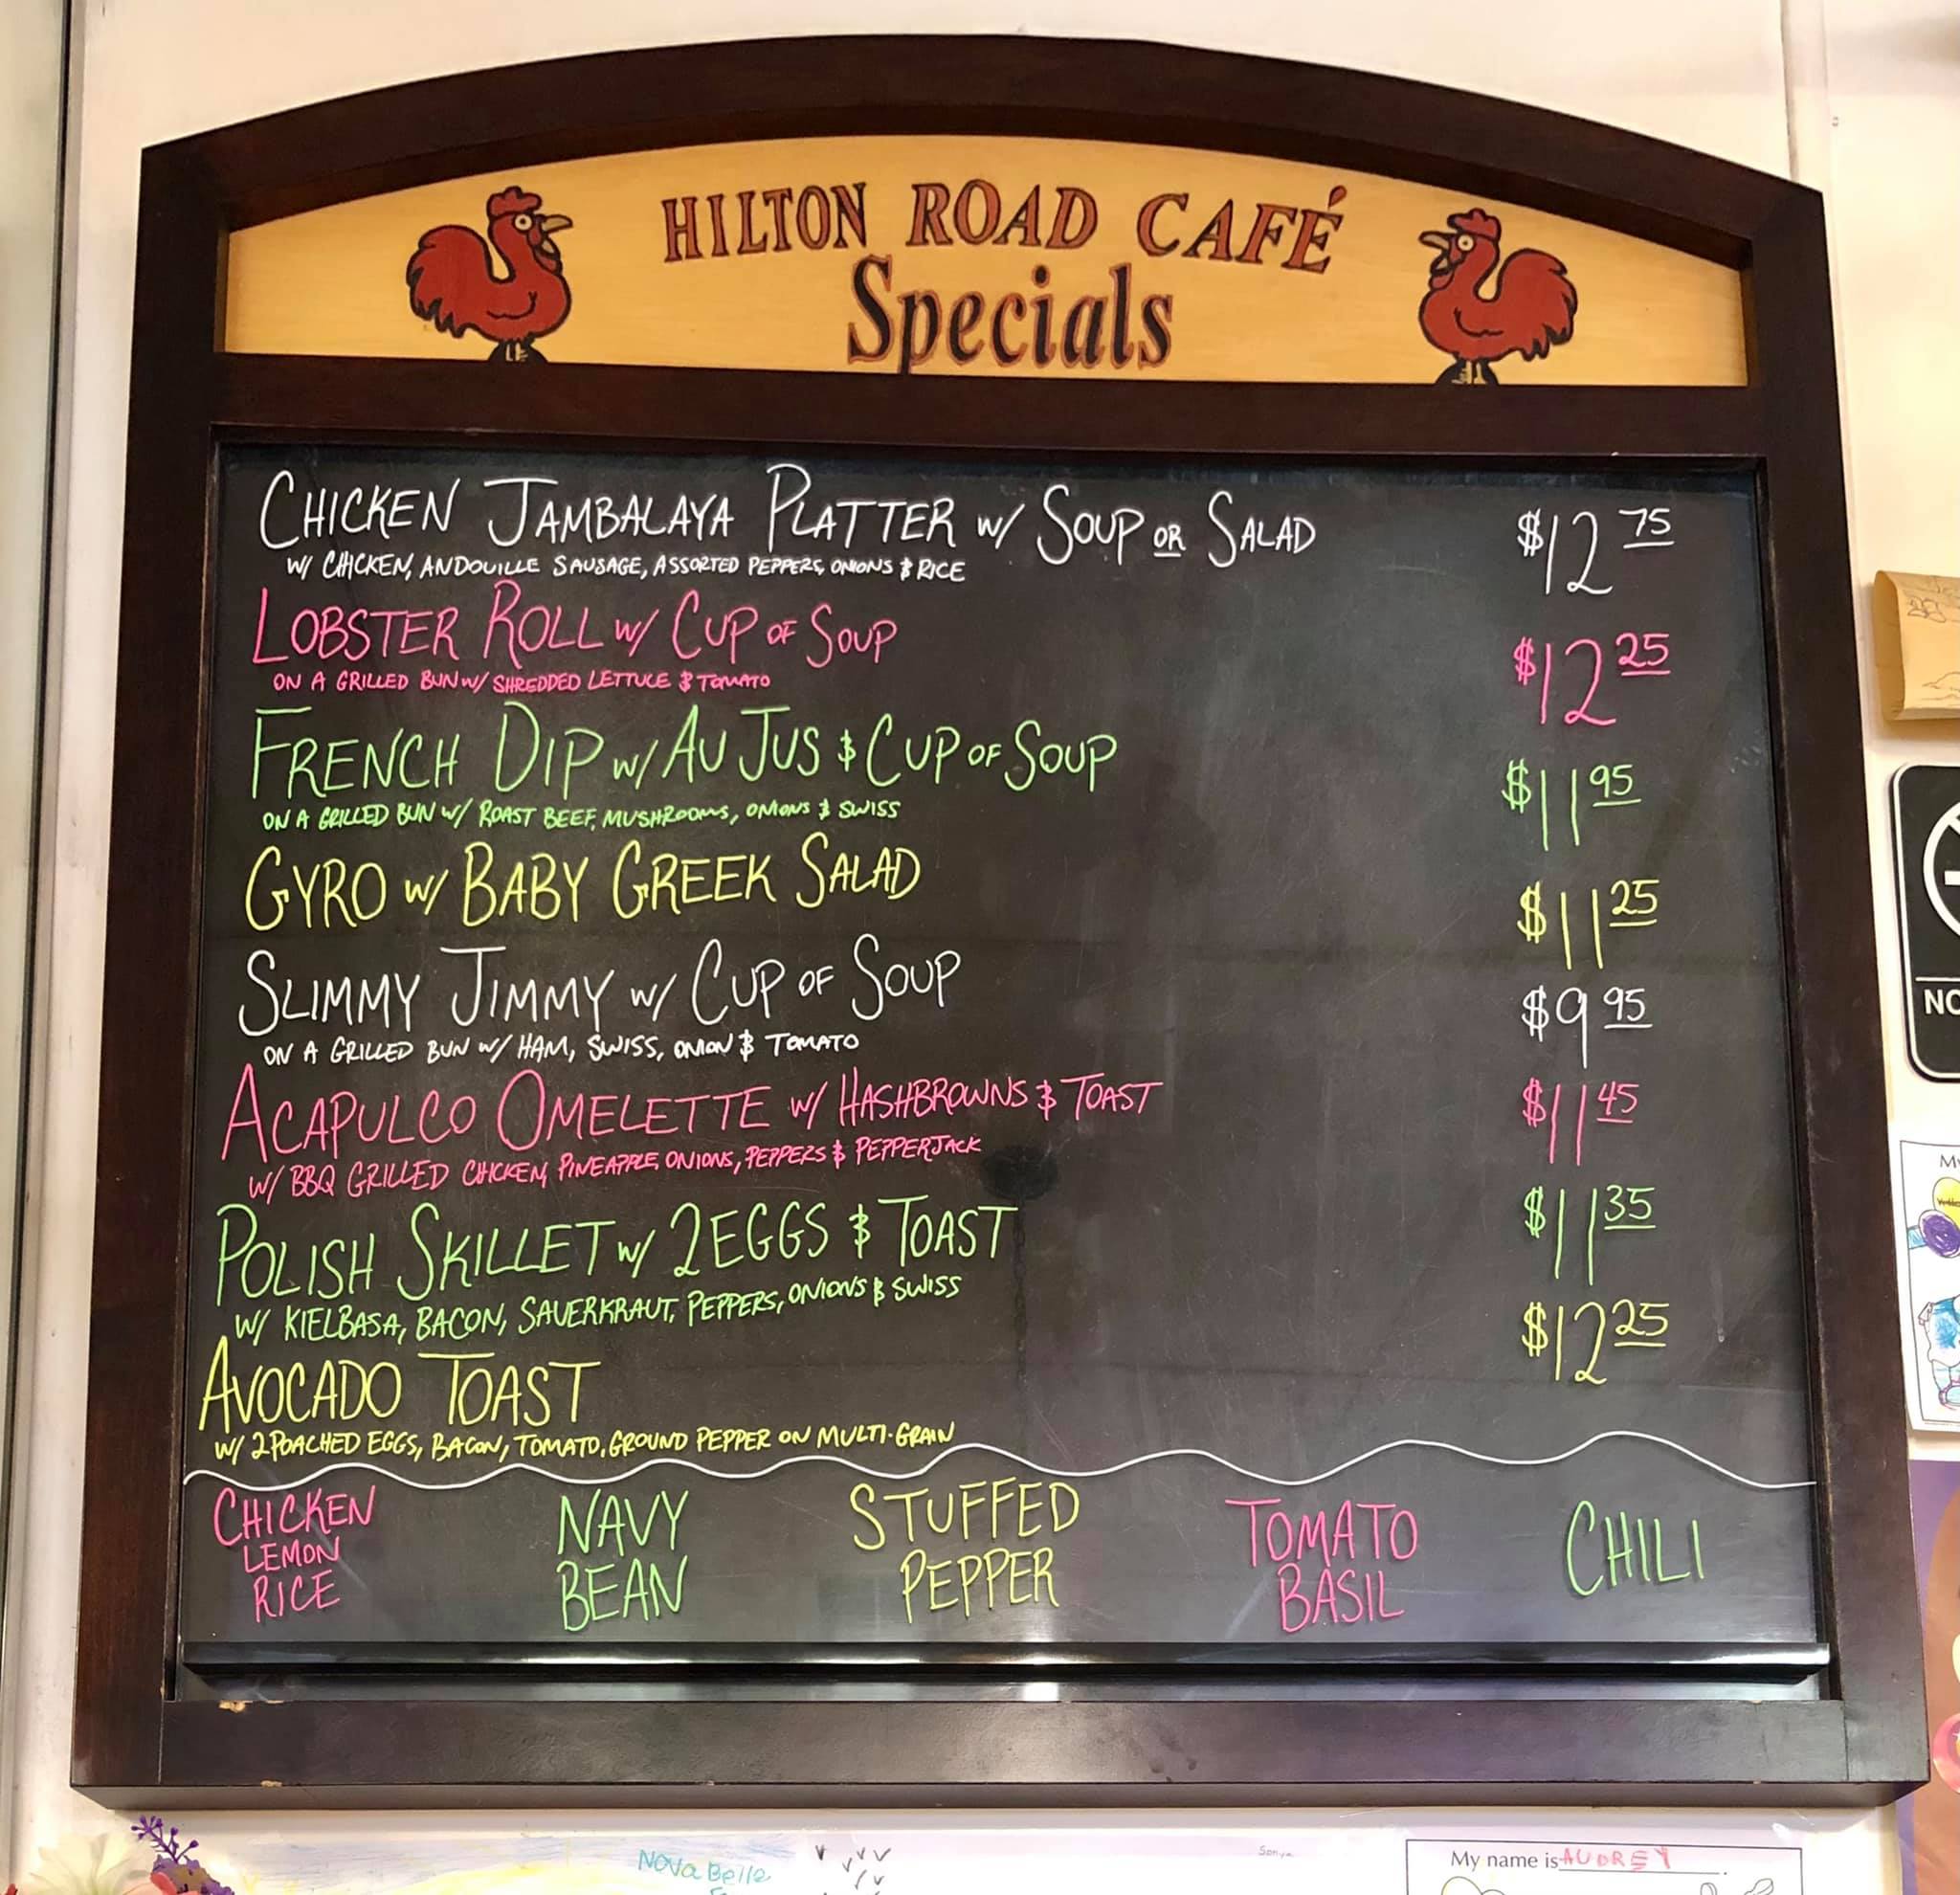 HILTON ROAD CAFÉ
Specials
CHICKEN JAMBALAYA PLATTER W/ SOUP OR SALAD $12 75
W/ CHICKEN, ANDOUILLE SAUSAGE, ASSORTED PEPPERS, ONIONS & RICE
LOBSTER ROLL W/ CUP OF SOUP $12 25
ON A GRILLED BUN W/ SHREDDED LETTUCE & TOMATO
FRENCH DIP W/ AU JUS & CUP OF SOUP $11 95
ON A GRILLED BUN W/ ROAST BEEF, MUSHROOMS, ONIONS & SWISS
GYRO W/ BABY GREEK SALAD $11 25
SLIMMY JIMMY W/ CUP OF SOUP $9 95
ON A GRILLED BUN W/ HAM, SWISS, ONION & TOMATO
ACAPULCO OMELETTE W/ HASHBROWNS & TOAST $11 45
W/ BBQ GRILLED CHICKEN, PINEAPPLE, ONIONS, PEPPERS & PEPPERJACK
POLISH SKILLET W/ 2 EGGS & TOAST $11 35
W/ KIELBASA, BACON, SAUERKRAUT, PEPPERS, ONIONS & SWISS
AVOCADO TOAST $12 25
W/ 2 POACHED EGGS, BACON, TOMATO, GROUND PEPPER ON MULTI-GRAIN
CHICKEN LEMON RICE
NAVY BEAN
STUFFED PEPPER
TOMATO BASIL
CHILI
NO
My
Nova Belle
My name is AUDREY